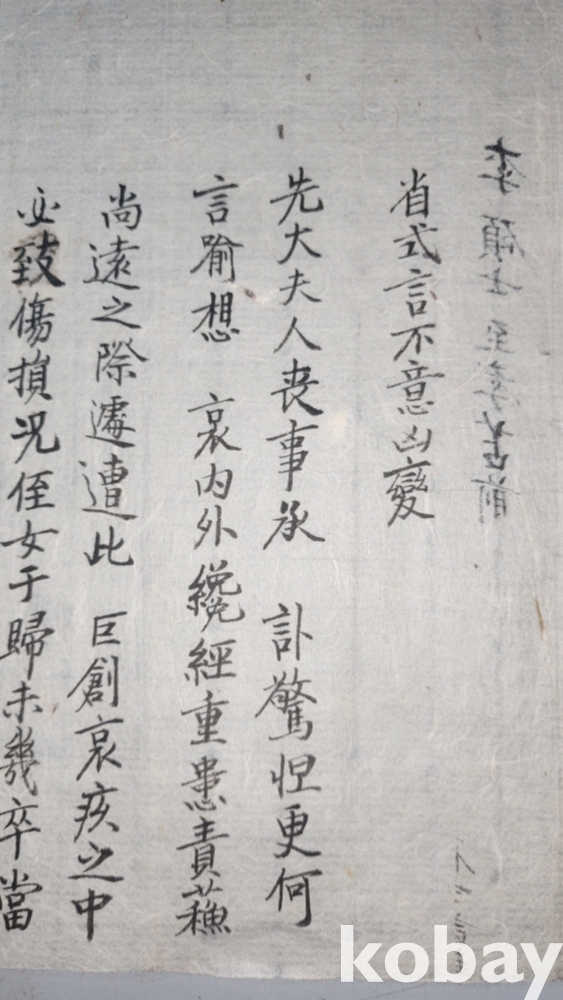 省式言不意凶變
先大夫人喪事承 訃驚怛更何
言喻想 哀內外纔經重患責蘓
尚遠之際遽遭此 巨創哀疚之中
必致傷損況侄女于歸未幾卒當
kobay